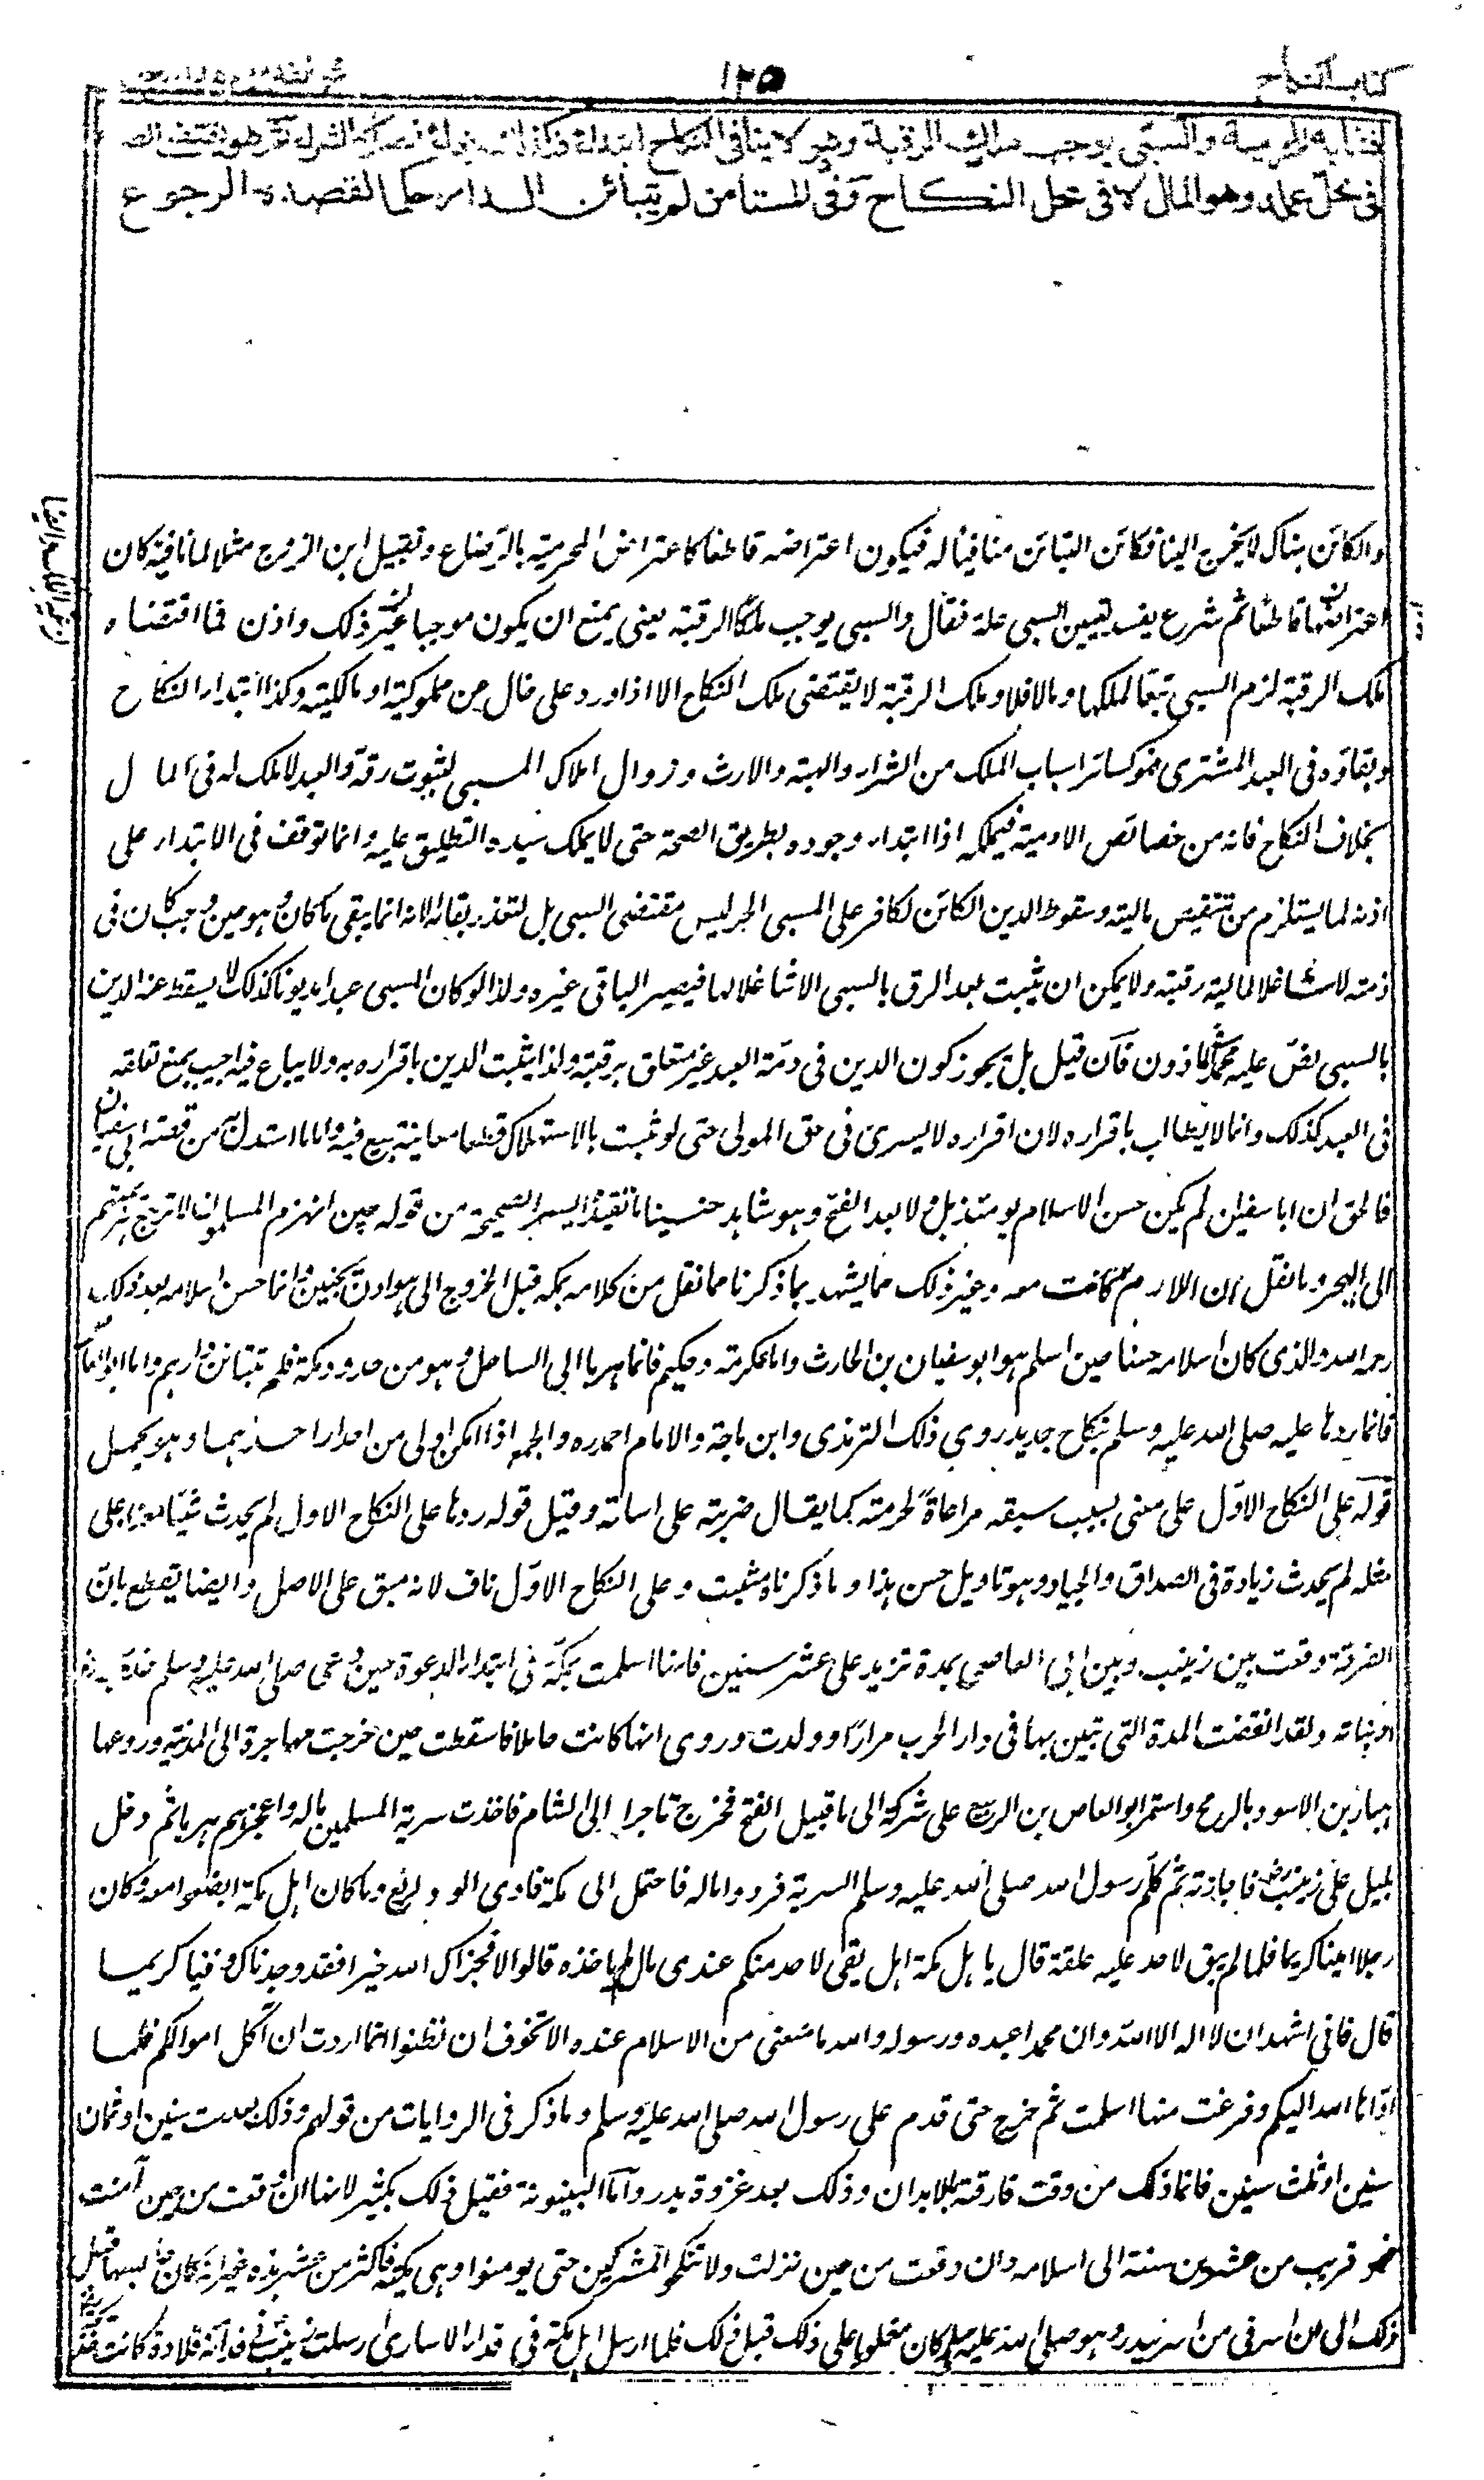 كتاب النكاح
١٢٥
والسبى يوجب ملك الرقبة وهو لا ينافى النكاح ابتداء فكذلك بقاء فصار كالشراء ثم هو يقتضى الصفاء
فى محل عمله وهو المال لا فى محل النكاح وفى المستامن لم يتباين الدار حكما لقصده الرجوع
والكائن هناك لا يخرج الينا فكان التباين منافيا له فيكون اعتراضه قاطعا كاعتراض المحرمية بالرضاع وتقبيل ابن الزوج مثلا لمانافيه كان
اعتراضها قاطعا ثم شرع يفسد تعيين السبى علة فقال والسبى يوجب ملك الرقبة يعنى يمنع ان يكون موجبا غير ذلك واذن فما اقتضاه
ملك الرقبة لزم السبى تبعا لملكها ومالا فلا وملك الرقبة لا يقتضى ملك النكاح الا اذا ورد على خال عن مملوكية او مالكية وكذا ابتداء النكاح
وبقاؤه فى العبد المشترى فهو كسائر اسباب الملك من الشراء والهبة والارث وزوال املاك المسبى لثبوت رقه والعبد لا ملك له فى المال
بخلاف النكاح فانه من خصائص الادمية فيملكه اذا ابتداء وجوده بطريق الصحة حتى لا يملك سيده التطليق عليه وانما توقف فى الابتداء على
اذنه لما يستلزم من تنقيص ماليته وسقوط الدين الكائن لكافر على المسبى الحر ليس مقتضى السبى بل لتعذر بقائه لانه انما يبقى ما كان وهو حين وجب كان فى
ذمته لا شاغلا لمالية رقبته ولا يمكن ان يثبت بعد الرق بالسبى الا شاغلا لها فيصير الباقى غيره ولذا لو كان المسبى عبدا مديونا كذلك لا يسقط عنه الدين
بالسبى نص عليه محمد فى الماذون فان قيل بل يجوز كون الدين فى ذمة العبد غير متعلق برقبته ولذا يثبت الدين باقراره به ولا يباع فيه اجيب بمنع تعلقه
فى العبد كذلك وانما لا يطالب باقراره لان اقراره لا يسرى فى حق المولى حتى لو ثبت بالاستهلاك قطعا معاينة بيع فيه واما ما استدل به من قصة ابى سفيان
فالحق ان ابا سفيان لم يكن حسن الاسلام يومئذ بل ولا بعد الفتح وهو شاهد حنينا ما تفيده السير الصحيحة من قوله حين انهزم المسلمون لا ترجع هزيمتهم
الى البحر وما نقل ان الازلام كانت معه وغير ذلك مما يشهد بما ذكرنا مما نقل من كلامه بمكة قبل الخروج الى هوازن بحنين وانما حسن اسلامه بعد ذلك
رحمه الله والذى كان اسلامه حسنا حين اسلم هو ابو سفيان بن الحارث واما عكرمة وحكيم فانما هربا الى الساحل وهو من حدود مكة فلم تتباين دارهم واما ابو العاص
فانما ردها عليه صلى الله عليه وسلم بنكاح جديد روى ذلك الترمذى وابن ماجة والامام احمد والجمع اذا امكن اولى من اهدار احدهما وهو يحمل
قوله على النكاح الاول على معنى بسبب سبقه مراعاة لحرمته كما يقال ضربته على اساءته وقيل قوله ردها على النكاح الاول لم يحدث شيئا معناه على
مثله لم يحدث زيادة فى الصداق والحياء وهو تاويل حسن هذا وما ذكرناه مثبت وعلى النكاح الاول ناف لانه مبق على الاصل وايضا يقطع بان
الفرقة وقعت بين زينب وبين ابى العاصى بمدة تزيد على عشر سنين فانها اسلمت بمكة فى ابتداء الدعوة حين دعى صلى الله عليه وسلم
وبناته ولقد انقضت المدة التى تبين بها فى دار الحرب مرارا وولدت وروى انها كانت حاملا فاسقطت حين خرجت مهاجرة الى المدينة وروعها
هبار بن الاسود بالرمح واستمر ابو العاص بن الربيع على شركه الى ما قبيل الفتح فخرج تاجرا الى الشام فاخذت سرية المسلمين ماله واعجزهم هربا ثم دخل
بليل على زينب فاجارته ثم كلم رسول الله صلى الله عليه وسلم السرية فردوا ماله فاحتمل الى مكة فادى الودائع وما كان اهل مكة ابضعوا معه وكان
رجلا امينا كريما فلما لم يبق لاحد عليه علقة قال يا اهل مكة هل بقى لاحد منكم عندى مال لم ياخذه قالوا لا فجزاك الله خيرا فقد وجدناك وفيا كريما
قال فانى اشهد ان لا اله الا الله وان محمدا عبده ورسوله والله ما منعنى من الاسلام عنده الا تخوف ان تظنوا انما اردت ان اكل اموالكم فلما
اداها الله اليكم وفرغت منها اسلمت ثم خرج حتى قدم على رسول الله صلى الله عليه وسلم وما ذكر فى الروايات من قولهم وذلك بعد ست سنين او ثمان
سنين او ثلث سنين فانما ذلك من وقت فارقته بالابدان وذلك بعد غزوة بدر واما البينونة فقبل ذلك بكثير لانها ان وقعت من حين آمنت
فهو قريب من عشرين سنة الى اسلامه وان وقعت من حين نزلت ولا تنكحوا المشركين حتى يومنوا وهى مكية فاكثر من عشر هذه غير انه كان حابسها قبل
ذلك الى ان اسر فى من اسر ببدر وهو صلى الله عليه وسلم كان مغلوبا على ذلك قبل ذلك فلما ارسل اهل مكة فى فداء الاسارى ارسلت زينب فى فدائه قلادة كانت